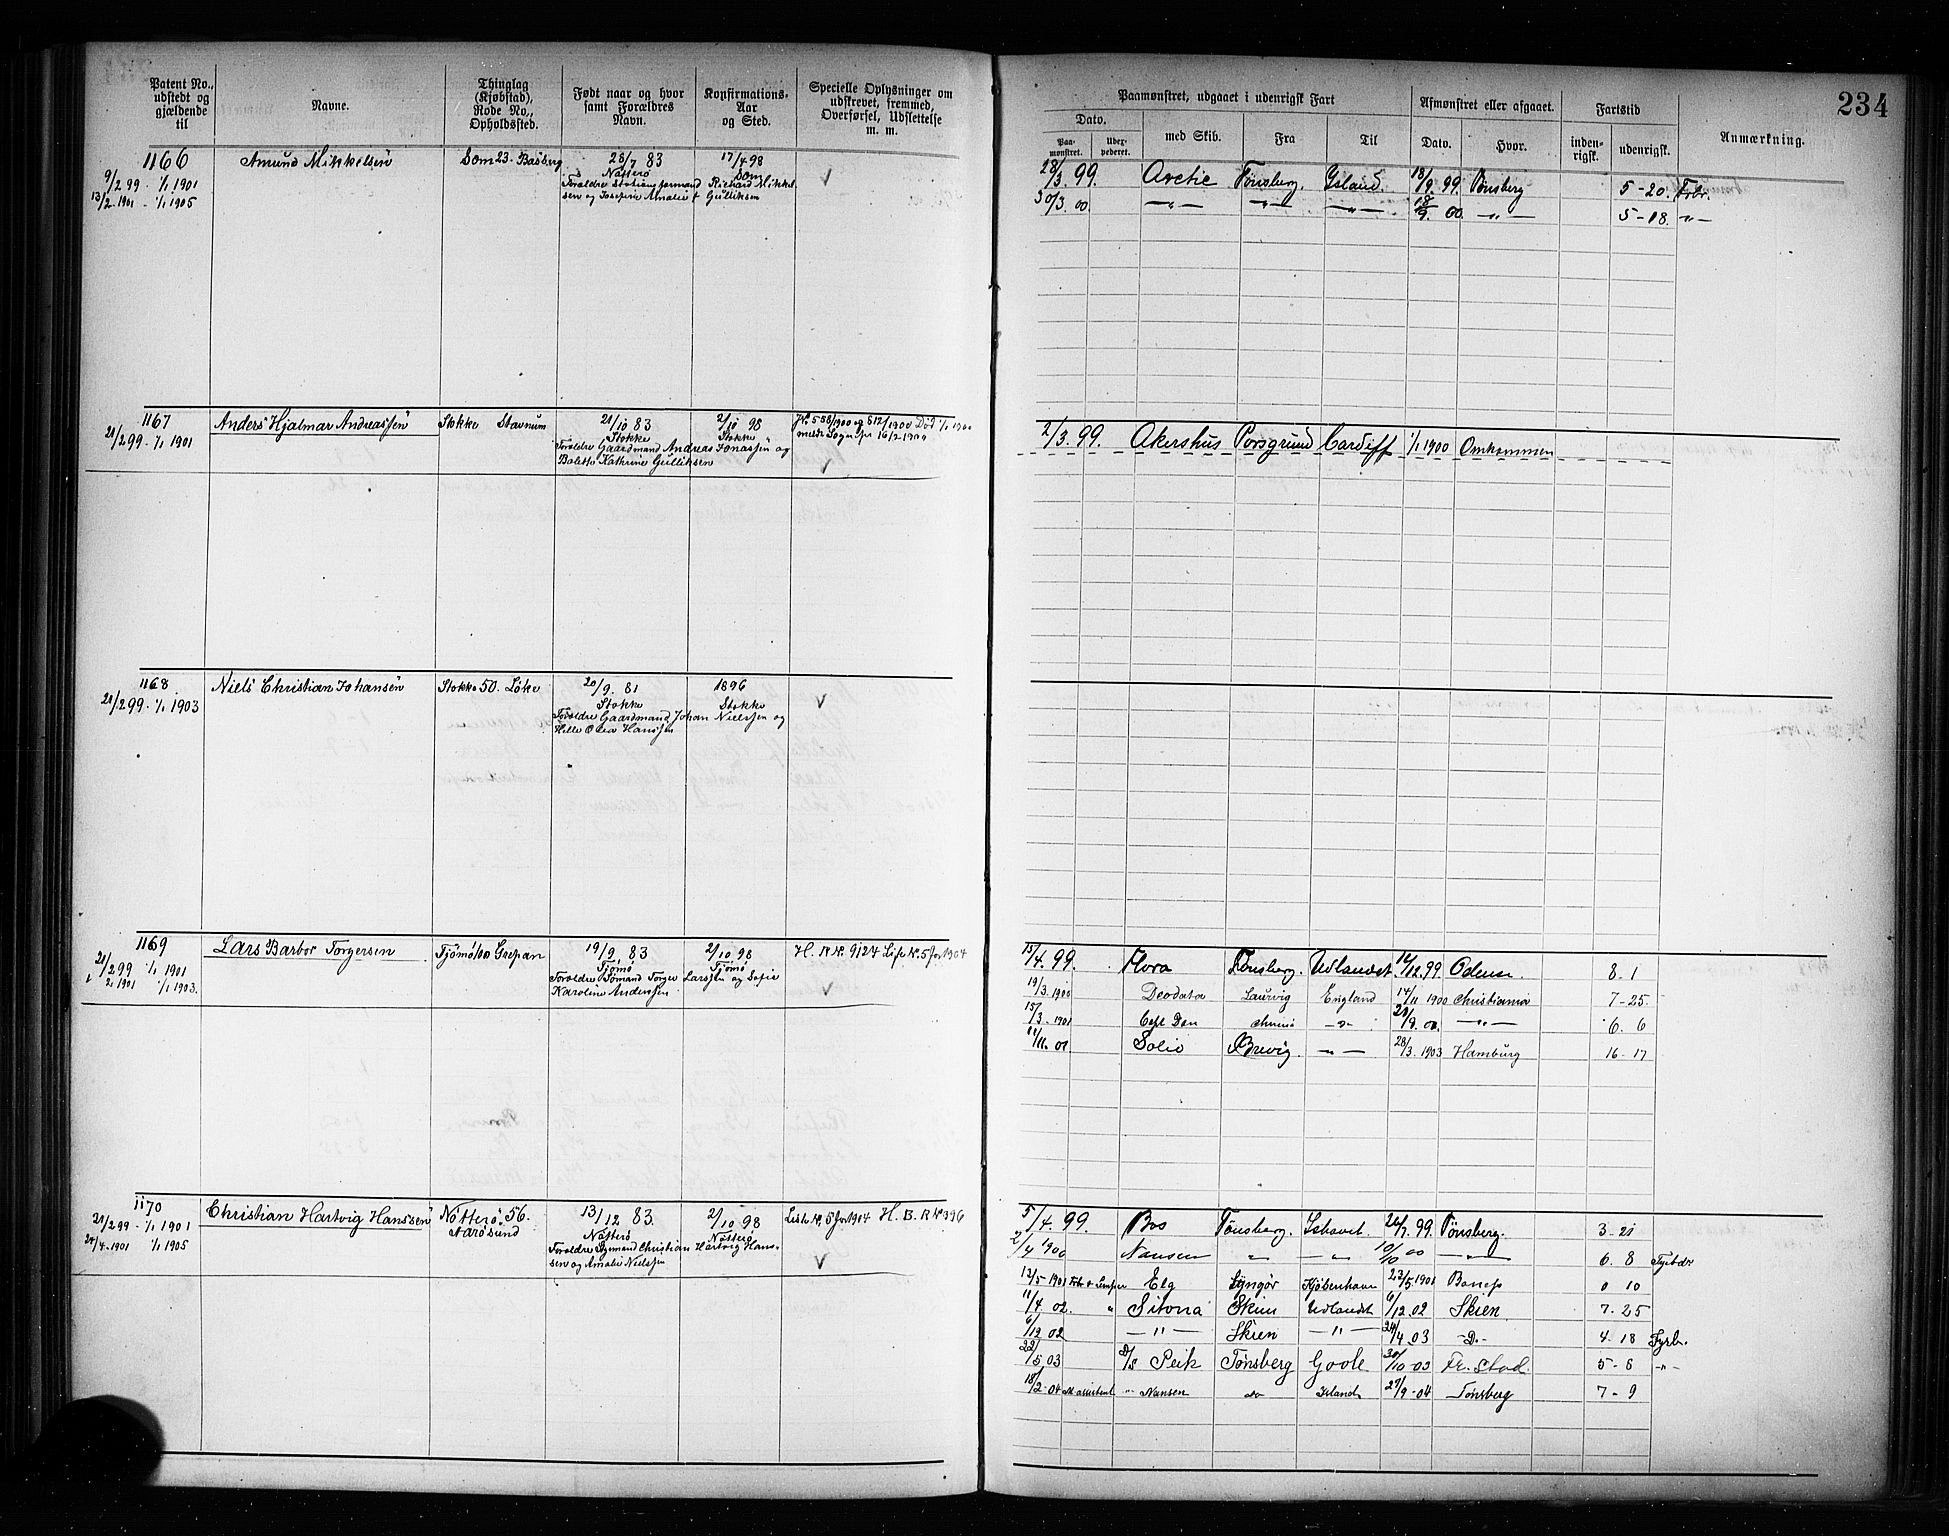 234
Patent No., udstedt og gjældende til
Navne.
Thinglag (Kjøbstad), Rode No., Opholdssted.
Født naar og hvor samt Forældres Navn.
Konfirmations-Aar og Sted.
Specielle Oplysninger om udskrevet, fremmed, Overførsel, Udslettelse m. m.
Paamønstret, udgaaet i udenrigsk Fart
Afmønstret eller afgaaet.
Fartstid
Anmærkning.
Dato.
Paa-mønstret. Uder-pederet.
med Skib.
Fra
Til
Dato.
Hvor.
inden-rigsk.
udenrigsk.
1166
9/2 99 - 1/1 1901
13/2 1901 - 1/1 1905
Amund Mikkelsen
Sem 23. Basberg
28/7 83
Nøtterø
17/4 98
Sem
Richard Mikkel
sen og Josefine Amalie f Gulliksen
28/3. 99. Arctic Tønsberg. Island 18/9. 99. Tønsberg 5-20. Frbr.
30/3. 00. — " — — " — — " — 18/9. 00. — " — 5-18. — " —
1167
21/2 99 - 1/1 1901
Anders Hjalmar Andreassen
Stokke Stavnum
21/10 83
Stokke
Forældre Gaardmand Andreas Jonassen og
Bolette Kathrine Gulliksen
2/10 98
Stokke
J.N. 558/1900 og 612/1900 Død 1/1 1900
meldt Sogn.Spr 16/2 1900
2/3. 99. Akershus Porsgrund Cardiff 1/1 1900 Omkommen
1168
21/2 99 - 1/1 1903
Niels Christian Johansen
Stokke 50. Løke
20/9. 81
Stokke
Forældre Gaardmand Johan Nielssen og
Helle Olea Hanssen
1896
Stokke
1169
21/2 99 1/1 1901
2/1 1901 1/1 1903.
Lars Barbor Torgersen
Tjømø 100 Grepan
19/9. 83
Tjømø
Forældre Sømand Torger Larssen og Sofie
Karoline Anderssen
2/10 98
Tjømø
H. R. N. 9127 List N. 5 for 1904
15/4. 99. Flora Tønsberg. Udlandet 12/12. 99. Odense. 8. 1
19/3. 1900 Deodata Laurvig England 14/11 1900 Christiania 7-25.
15/3. 1901 Capt Dan — " — — " — 6. 6
11/11. 01. Solid Brevig. — " — 28/3. 1903 Hamburg 16-17
1170
21/2 99 - 1/1 1901
24/4. 1901 1/1 1905
Christian Hartvig Hanssen
Nøtterø. 56.
Nårøsund
13/12 83.
Nøtterø
Forældre Sømand Christian Hartvig Hans-
sen og Amalie Nielssen
2/10 98
Nøtterø
Liste N. 5 for 1904 H. B. R N 996
5/4. 99. Bos Tønsberg. Ishavet 26/7. 99. Tønsberg. 3-21
2/4 1900 Nansen " — " 10/10 00 — " — 6. 8
12/5 1901 Elg Lyngør Kjøbenhavn 23/5 1901 0 10
11/4 02. " Sitona Skien Udlandet 6/12 02 Skien 7-25
6/12 02 — " — Skien — " — 24/4. 03 -D- 4-18 Fyrb.
22/5 03 D/S Peik Tønsberg Goole 30/10 03 Fr. Stad. 5-6 - " -
18/2-04 M assistent " Nansen do Island 27/9-04 Tønsberg 7-9